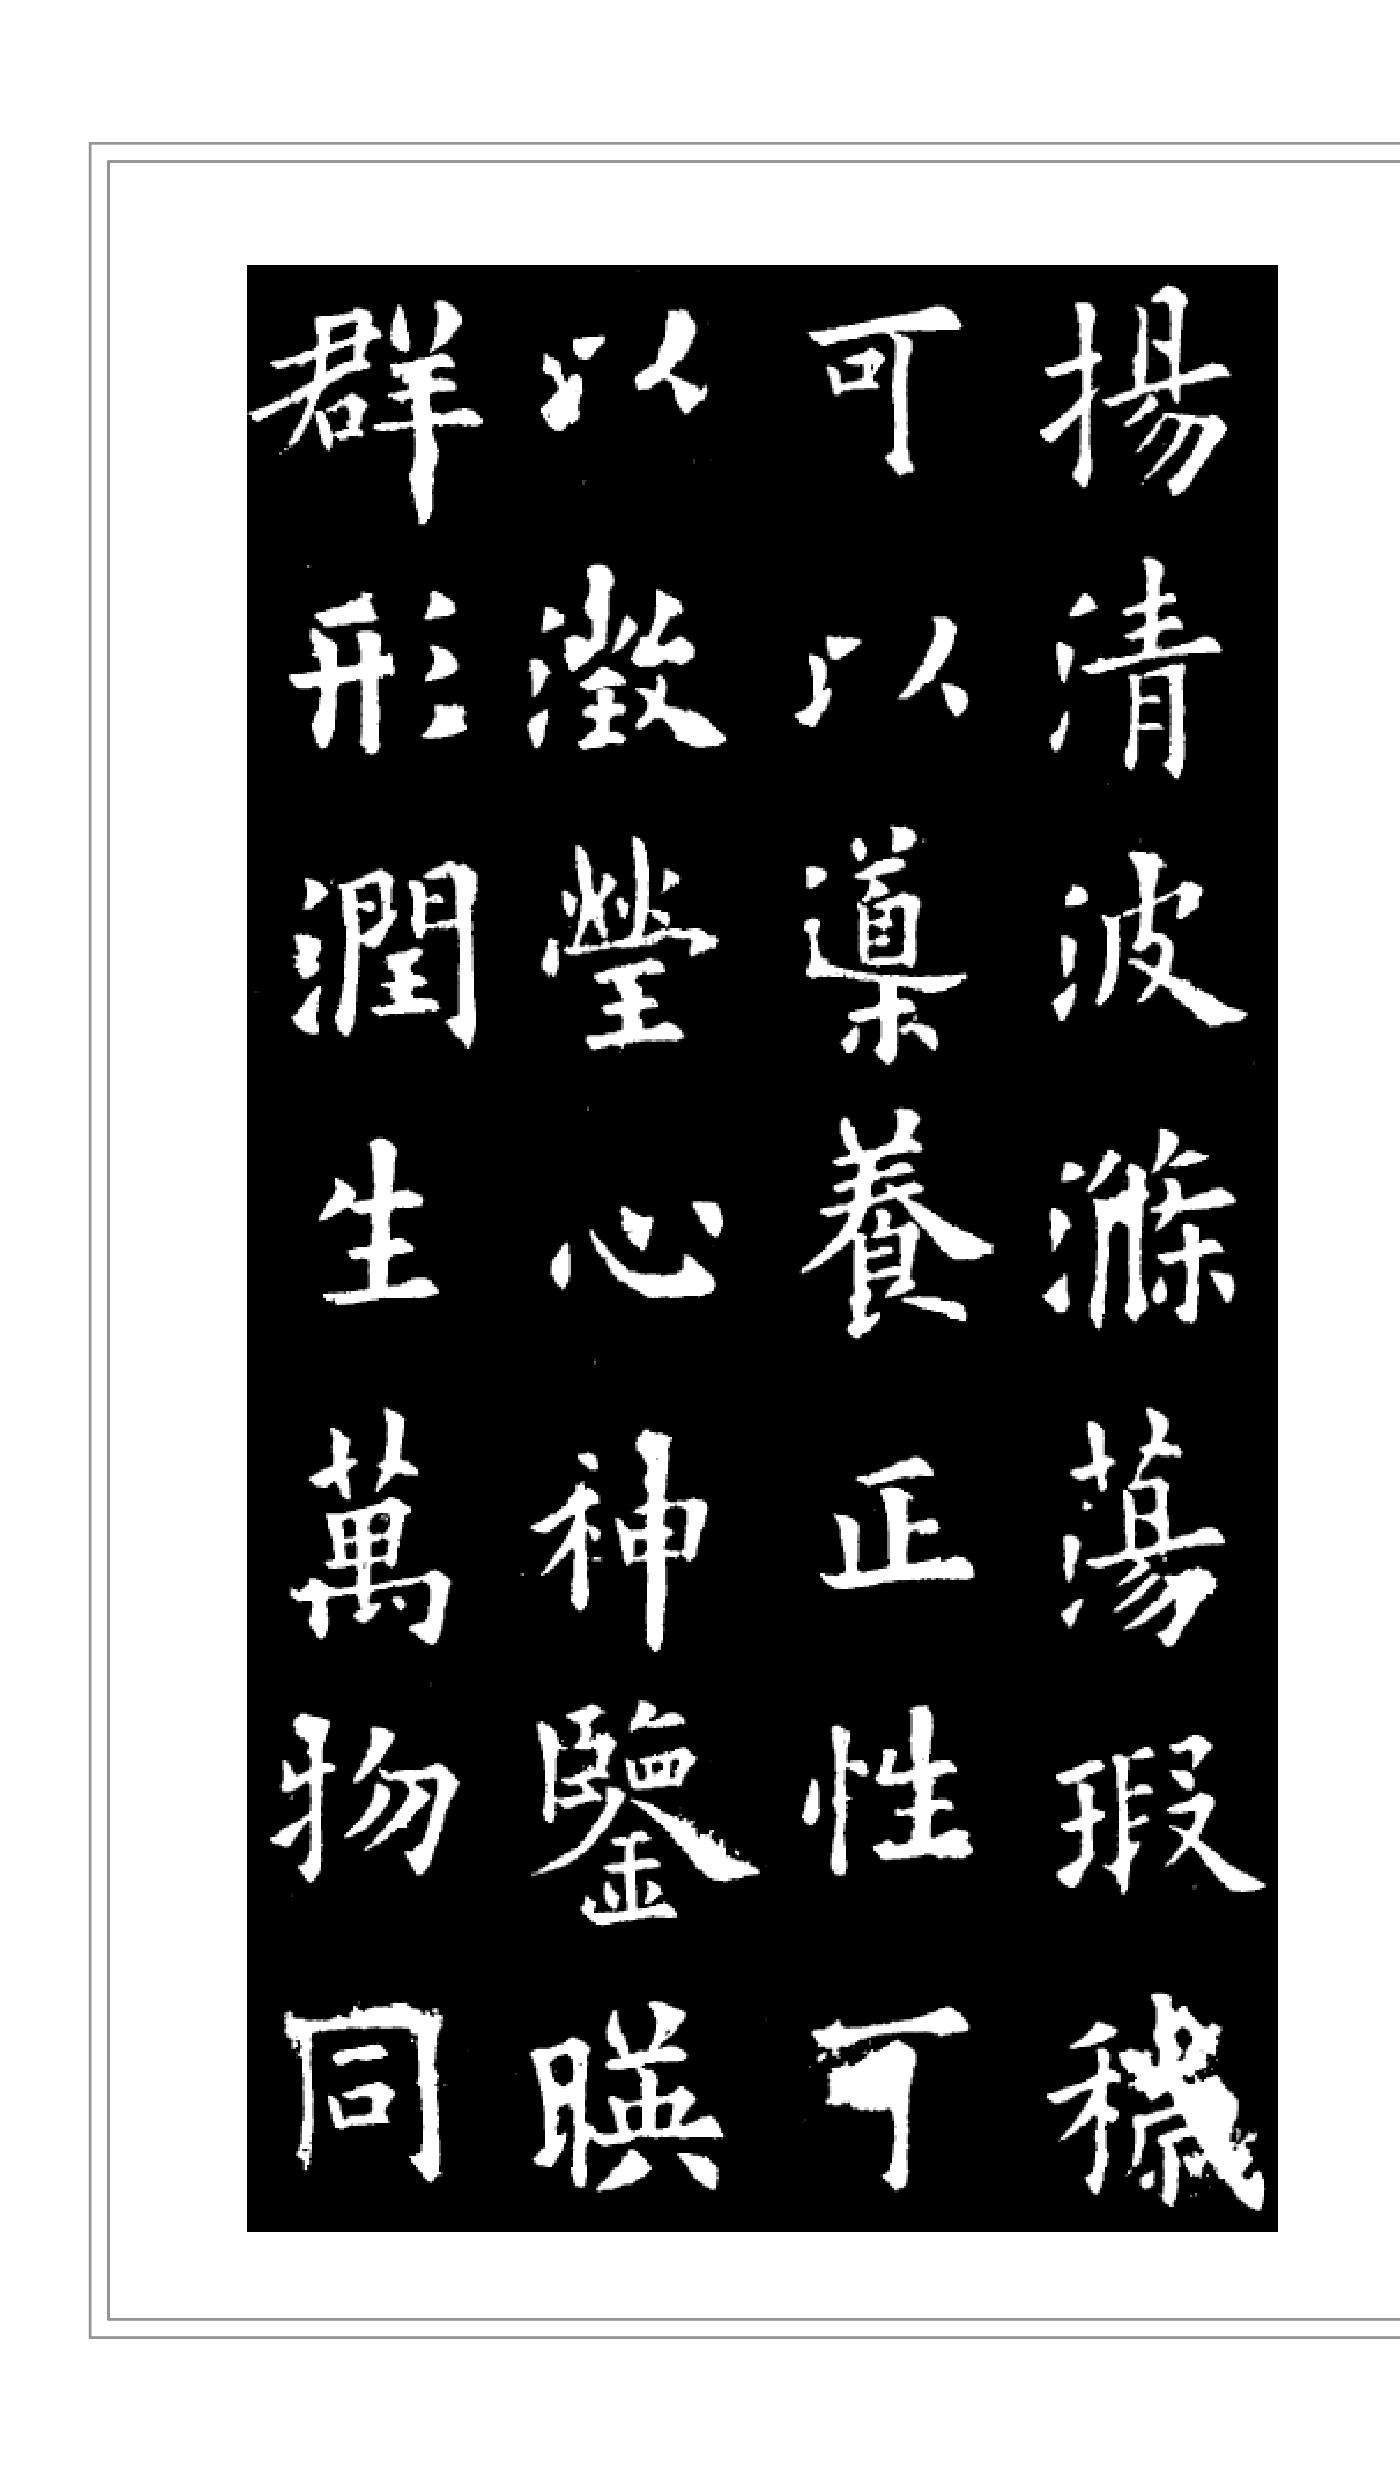 揚清波滌蕩瑕穢
可以導養正性可
以瀓瑩心神鑒暎
群形潤生萬物同